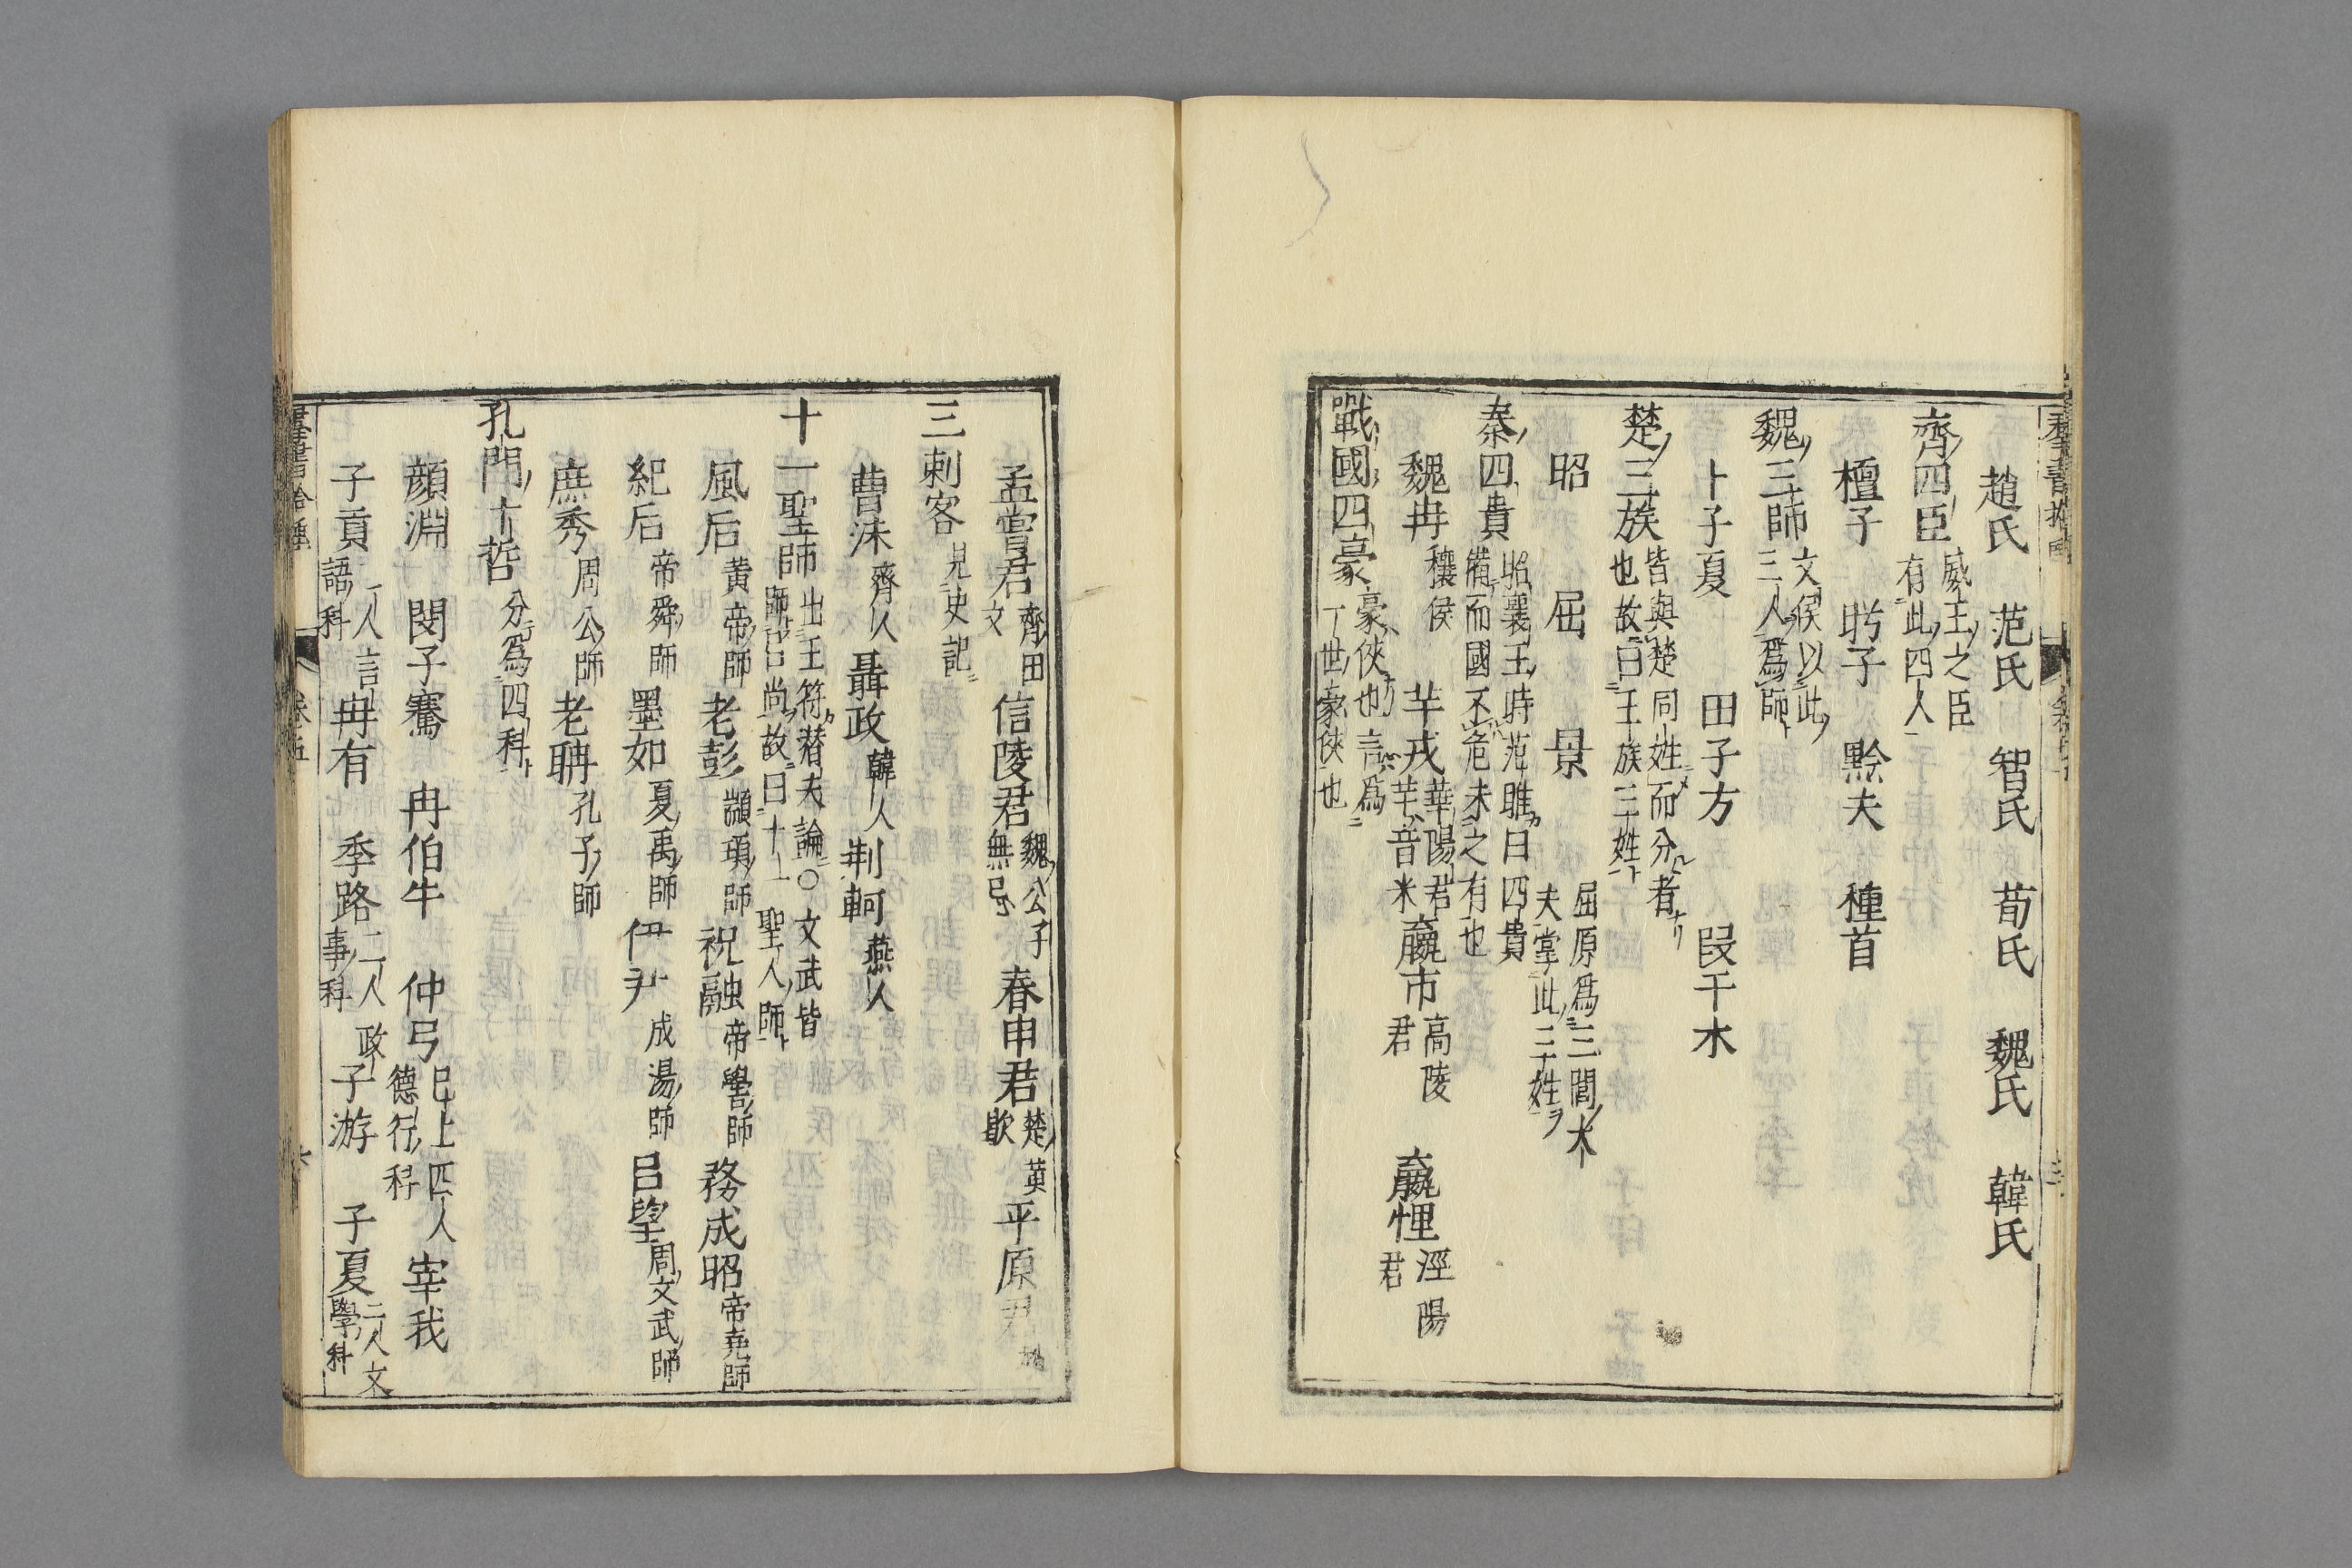 趙氏 范氏 智氏 荀氏 魏氏 韓氏
齊四臣 威王之臣有此四人
檀子 盻子 黔夫 種首
魏三師 文侯以此三人爲師
卜子夏 田子方 段干木
楚三族 皆與楚同姓而分者也故曰王族三姓
昭 屈 景 屈原爲三閭大夫掌此三姓
秦四貴 昭襄王時范雎曰四貴備而國不危未之有也
魏冉 穰侯 羋戎 華陽君羋音米 嬴市 高陵君 嬴悝 涇陽君
戰國四豪 豪俠也言爲一世豪俠也
孟嘗君 齊田文 信陵君 魏公子無忌 春申君 楚黃歇 平原君
三刺客 見史記
曹沬 齊人 聶政 韓人 荆軻 燕人
十一聖師 出王符潛夫論○文武皆師呂尚故曰十一聖人師
風后 黃帝師 老彭 顓頊師 祝融 帝嚳師 務成昭 帝堯師
紀后 帝舜師 墨如 夏禹師 伊尹 成湯師 呂望 周文武師
庶秀 周公師 老聃 孔子師
孔門十哲 分爲四科
顏淵 閔子騫 冉伯牛 仲弓 已上四人德行科 宰我
子貢 二人言語科 冉有 季路 二人政事科 子游 子夏 二人文學科
卷五